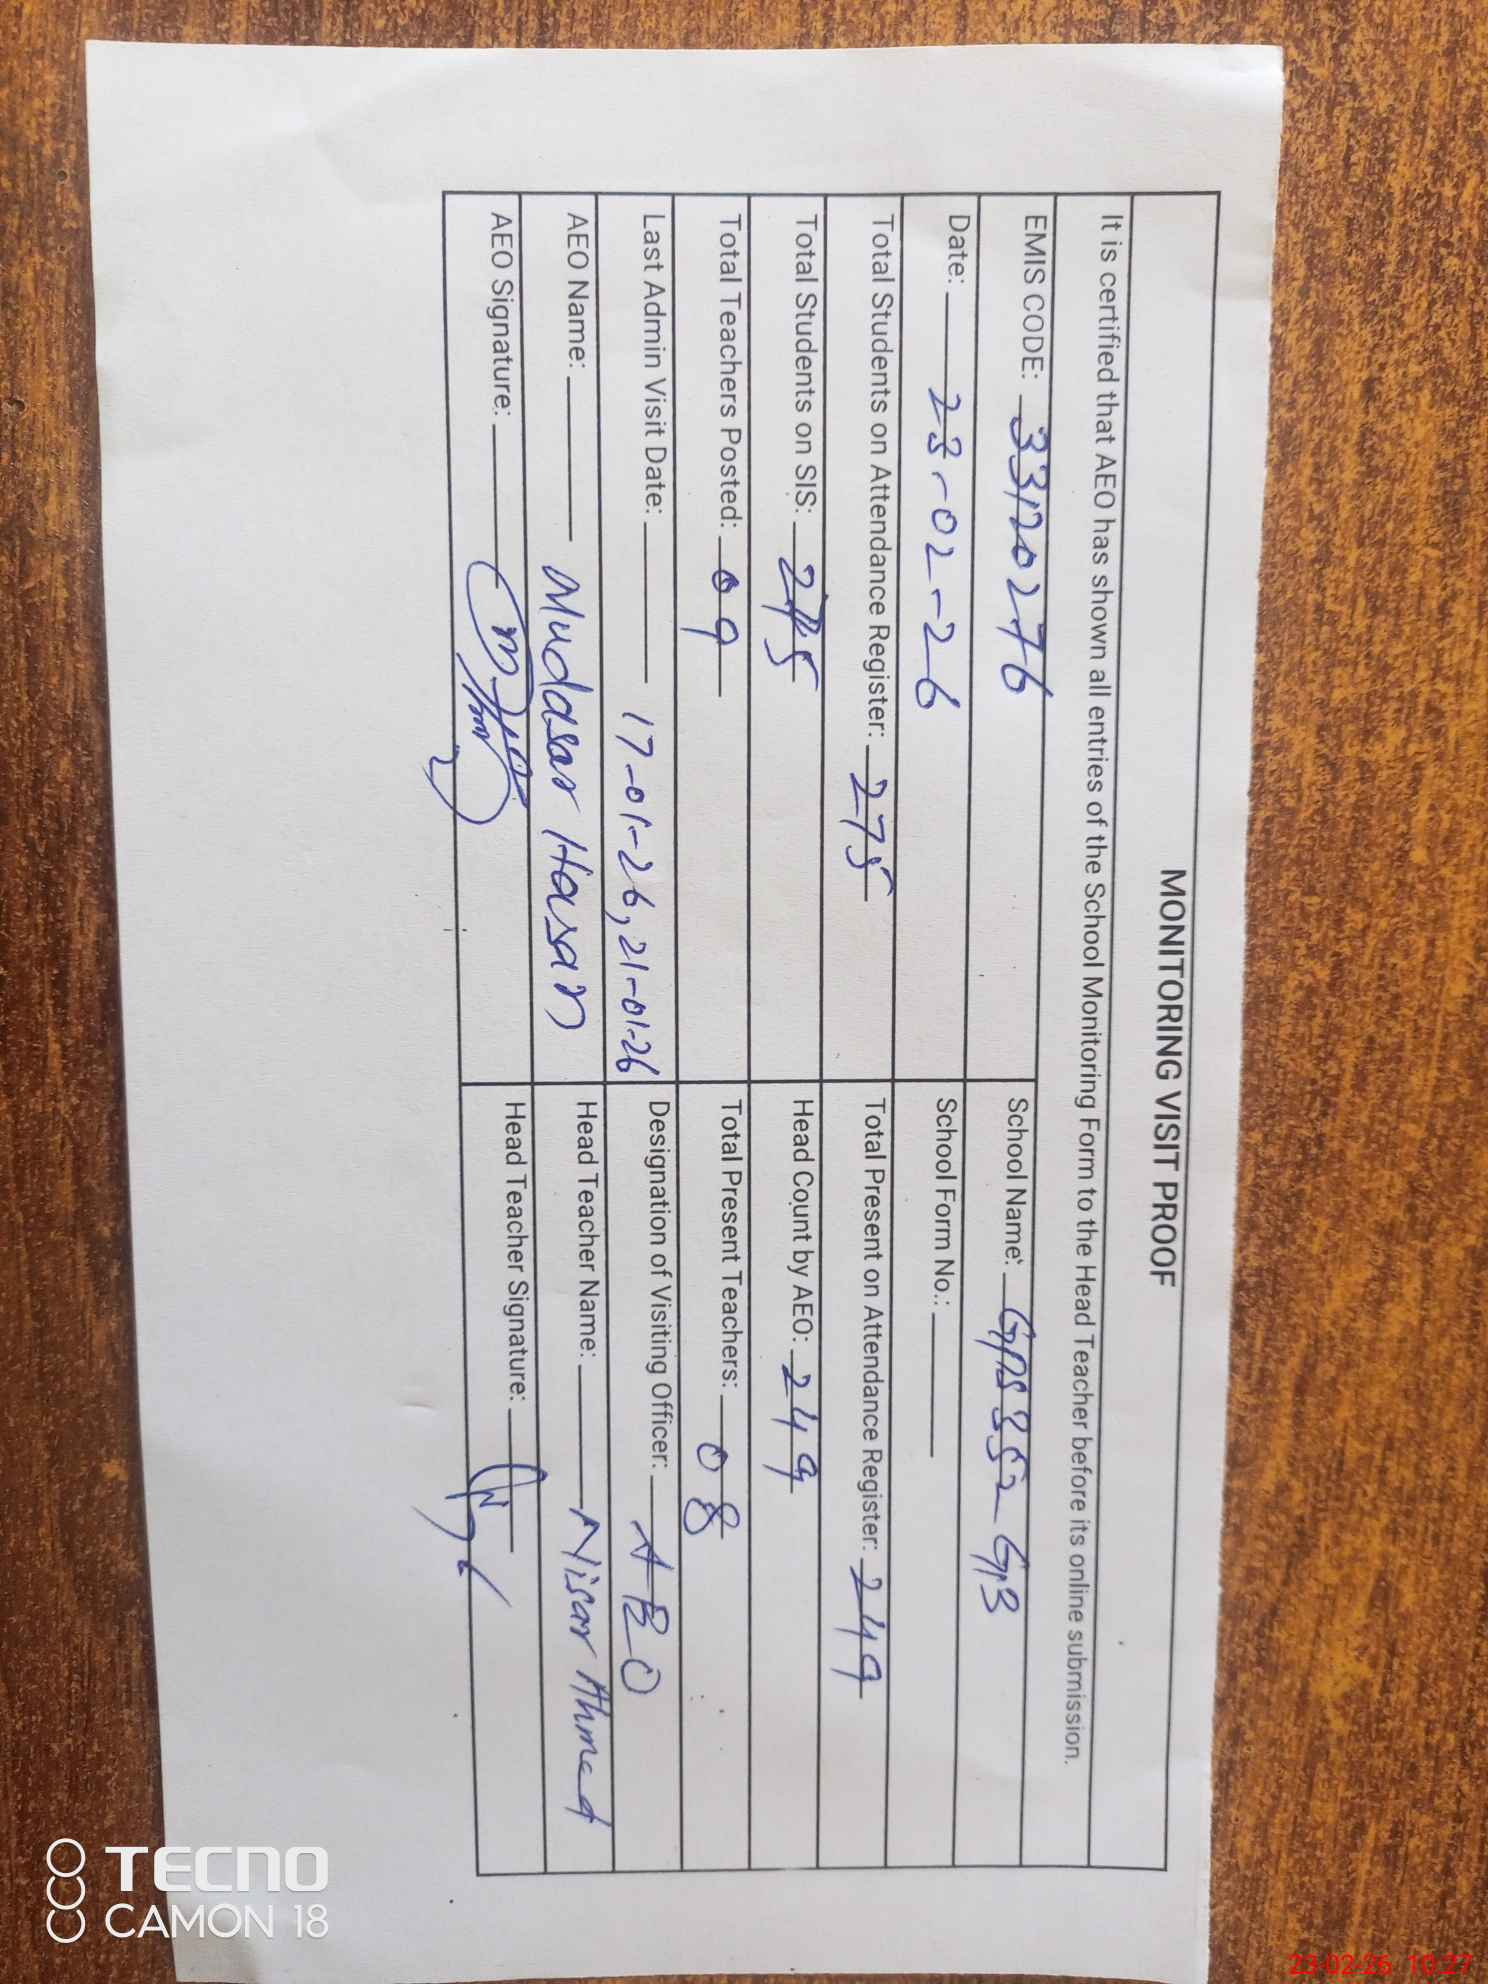 MONITORING VISIT PROOF
It is certified that AEO has shown all entries of the School Monitoring Form to the Head Teacher before its online submission.
EMIS CODE: 33120276 School Name: GPS 352 GB
Date: 23-02-26 School Form No.:
Total Students on Attendance Register: 275 Total Present on Attendance Register: 249
Total Students on SIS: 275 Head Count by AEO: 249
Total Teachers Posted: 09 Total Present Teachers: 08
Last Admin Visit Date: 17-01-26, 21-01-26 Designation of Visiting Officer: AEO
AEO Name: Mudasar Hasan Head Teacher Name: Nisar Ahmed
AEO Signature: Head Teacher Signature:
TECNO
CAMON 18
23-02-26 10:27